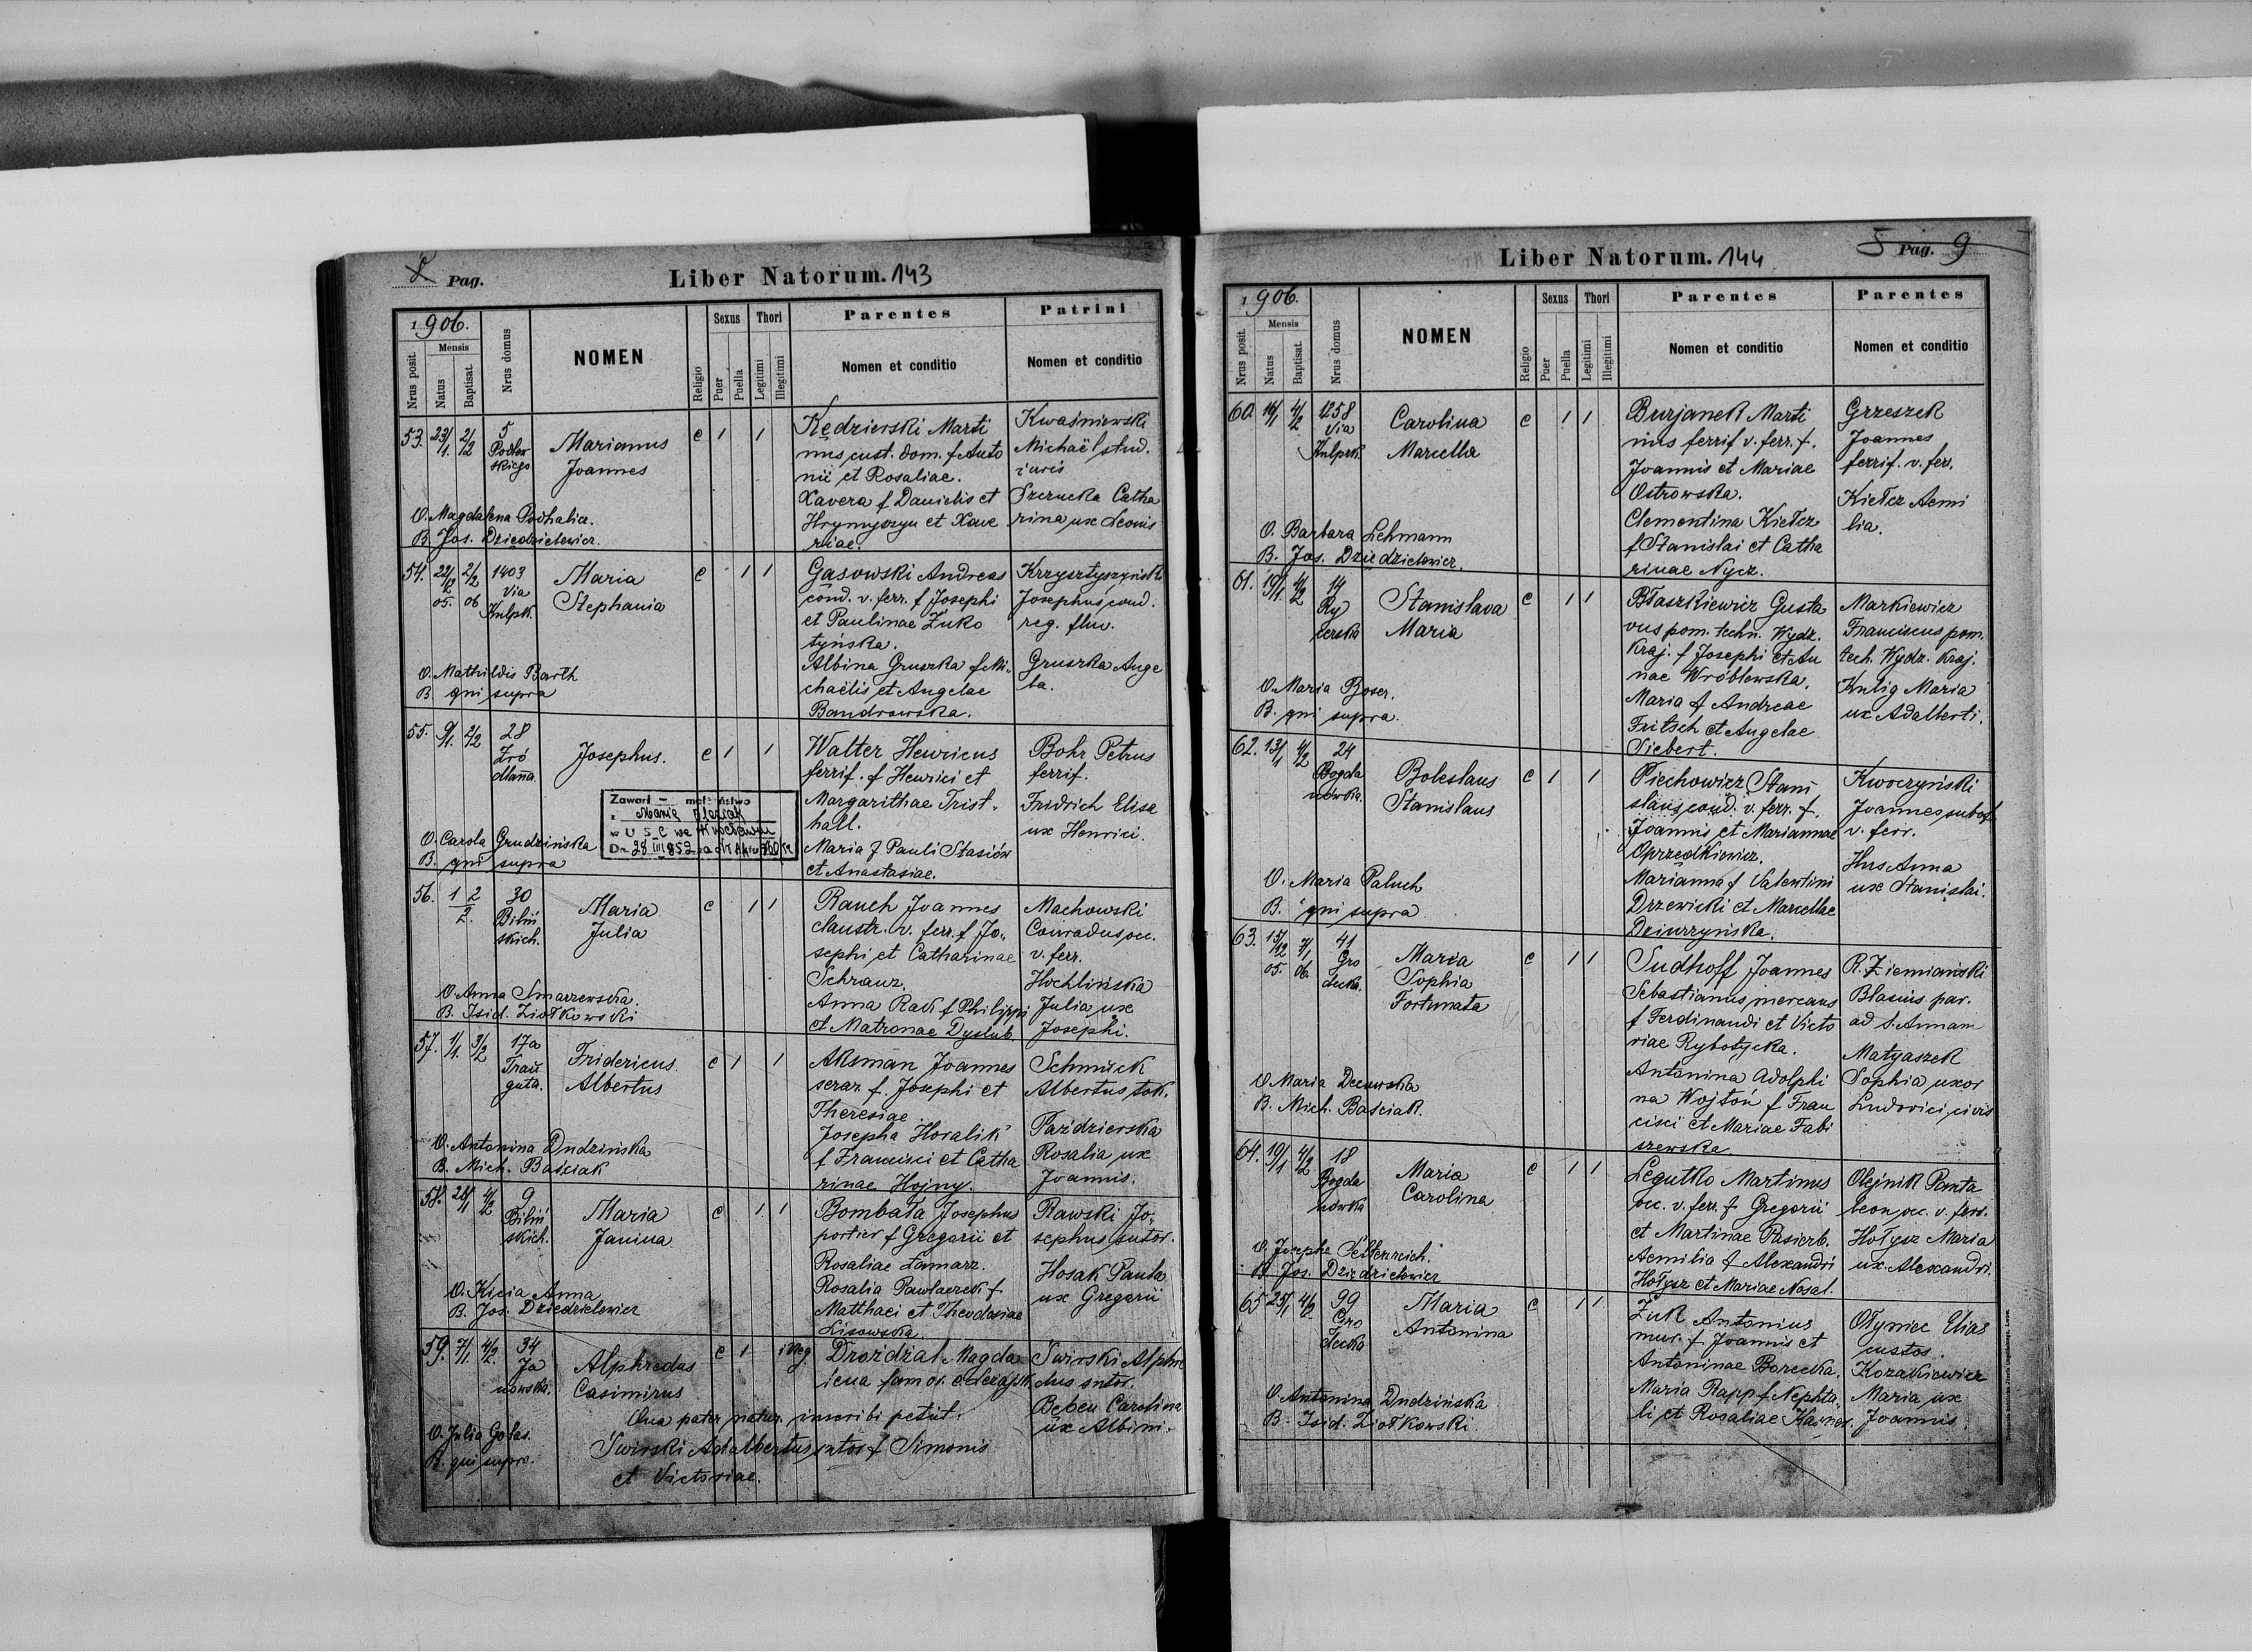 8 Pag.
Liber Natorum. 143
1906.
Mensis
Nrus posit.
Natus
Baptisat.
Nrus domus
NOMEN
Religio
Sexus
Puer
Puella
Thori
Legitimi
Illegitimi
Parentes
Nomen et conditio
Patrini
Nomen et conditio
53. 23/1. 2/2 5
Marianus
Joannes
c 1 1
Kędzierski Marti
nus cust. dom. f Anto
nii et Rosaliae.
Xavera f Danielis et
Hrymyszyn et Xave
riae.
Kwaśniewski
Michaël stud.
iuris
Szernecka Catha
rina ux Leonis
O. Magdalena Podhalicz.
B. Jos. Dziedzielewicz.
54. 22/12 05. 2/2 06 1403
Via
Kulpk.
Maria
Stephania
c 1 1
Gąsowski Andreas
cond. v. ferr. f Josephi
et Paulinae Żuko
tyńska.
Albina Gruszka f Mi-
chaëlis et Angelae
Bandrowska.
Josephus cond.
reg. fluv.
Gruszka Ange
la.
O. Mathildis Barth
B. qui supra
55. 9/1. 2/2 28
Źró
dlana.
Josephus.
c 1 1
Walter Henricus
ferrif. f Henrici et
Margarithae Trist-
hall.
Maria f Pauli Stasiów
et Anastasiae.
Bohr Petrus
ferrif.
Fridrich Elisa
ux Henrici.
Zawarł — małżeństwo
z Marią
w U S C we Wrocławiu
Dn. 28 III 1952
O. Carola Grudzińska
B. qui supra
56. 1 2
2.
30
Biliń
skich.
Maria
Julia
c 1 1
Rauch Joannes
claustr. v. ferr. f Jo-
sephi et Catharinae
Schranz.
Anna Rack f Philippi
et Matronae Dyslub
Machowski
Conradus oec.
v. ferr.
Hochlińska
Julia ux
Josephi.
O. Anna Smarzewska.
B. Isid. Ziołkowski
57. 1/1. 3/2 17a
Trau
guta.
Fridericus
Albertus
c 1 1
Aksman Joannes
serar. f. Josephi et
Theresiae
Josepha Horalik
f Francisci et Catha
rinae Hojny.
Schmück
Albertus tok.
Paździerska
Rosalia ux
Joannis.
O. Antonina Dudzińska
B. Mich. Baściak
58. 26/1 4/2 9
Biliń
skich.
Maria
Janina
c 1 1
Bombała Josephus
portier f Gregorii et
Rosaliae Łamarz.
Rosalia Pawlaczek f
Matthaei et Theodosiae
Lisowska
Rawski Jo-
sephus sutor.
Hosak Paula
ux Gregorii
O. Kicia Anna
B. Jos. Dziedzielewicz
59. 7/1. 4/2. 34
Ja
nowska.
Alphredus
Casimirus
c 1 illeg.
Drożdżal Magda
lena fam. or. e Leżajsk
Swirski Alphre
dus sutor.
Beben Carolina
ux Albini.
Qua pater natur. inscribi petiit:
Świrski Adalbertus sutor f Simonis
et Victoriae.
O. Julia Gołas.
B. qui supra.
Liber Natorum. 144
5 Pag. 9
1906.
Mensis
Nrus posit.
Natus
Baptisat.
Nrus domus
NOMEN
Religio
Sexus
Puer
Puella
Thori
Legitimi
Illegitimi
Parentes
Nomen et conditio
Parentes
Nomen et conditio
60. 16/1 4/2 1258
Via
Kulprk.
Carolina
Marcella
c 1 1
Burjanek Marti
nus ferrif v. ferr. f.
Joannis et Mariae
Ostrowska.
Clementina Kiełcz
f Stanislai et Catha
rinae Nycz.
Grzeszek
Joannes
ferrif. v. fer.
Kiełcz Aemi
lia.
O. Barbara Lehmann
B. Jos. Dziedzielewicz.
61. 19/1. 4/2 14
Ry
cerska
Stanislava
Maria
c 1 1
Błaszkiewicz Gusta
vus pom. techn. Wydz.
Kraj. f Josephi et An
nae Wróblewska.
Maria f Andreae
Fritsch et Angelae
Siebert.
Markiewicz
Franciscus pom.
tech. Wydz. Kraj.
Kulig Maria
ux Adalberti.
O. Maria Boser.
B. qui supra.
62. 13/1 4/2 24
Bogda
nówka.
Boleslaus
Stanislaus
c 1 1
Piechowicz Stani
slaus cond. v. ferr. f.
Joannis et Mariannae
Oprzędkiewicz.
Marianna f Valentini
Drzewicki et Marcellae
Dziurzyńska.
Kwoczyński
Joannes subof.
v. ferr.
Hus Anna
ux Stanislai.
O. Maria Paluch
B. qui supra
63. 15/12 05. 7/1 06. 41
Gro
decka.
Maria
Sophia
Fortunata
c 1 1
Sudhoff Joannes
Sebastianus mercans
f Ferdinandi et Victo
riae Rybotycka.
Antonina Adolphi
na Wojtoń f Fran
cisci et Mariae Fabi
szewska.
R. Ziemiański
Blasius par.
ad S. Annam
Matyaszek
Sophia uxor
Ludovici civis
O. Maria Decowska
B. Mich. Baściak.
64. 19/1 4/2 18
Bogda
nówka
Maria
Carolina
c 1 1
Legutko Martinus
oec. v. fer. f Gregorii
et Martinae Pasierb.
Aemilia f Alexandri
Hołysz et Mariae Nosal.
Olejnik Panta
leon oec. v. ferr.
Hołysz Maria
ux Alexandri.
O. Josepha Seltenreich.
B. Jos. Dziedzielewicz
65 25/1 4/2. 99
Gro
decka
Maria
Antonina
c 1 1
Żuk Antonius
mur. f Joannis et
Antoninae Borecka.
Maria Rapp f Nephta-
li et Rosaliae Kasner.
Ołyniec Elias
custos.
Kozakiewicz
Maria ux
Joannis.
O. Antonina Dudzińska
B. Isid. Ziołkowski.